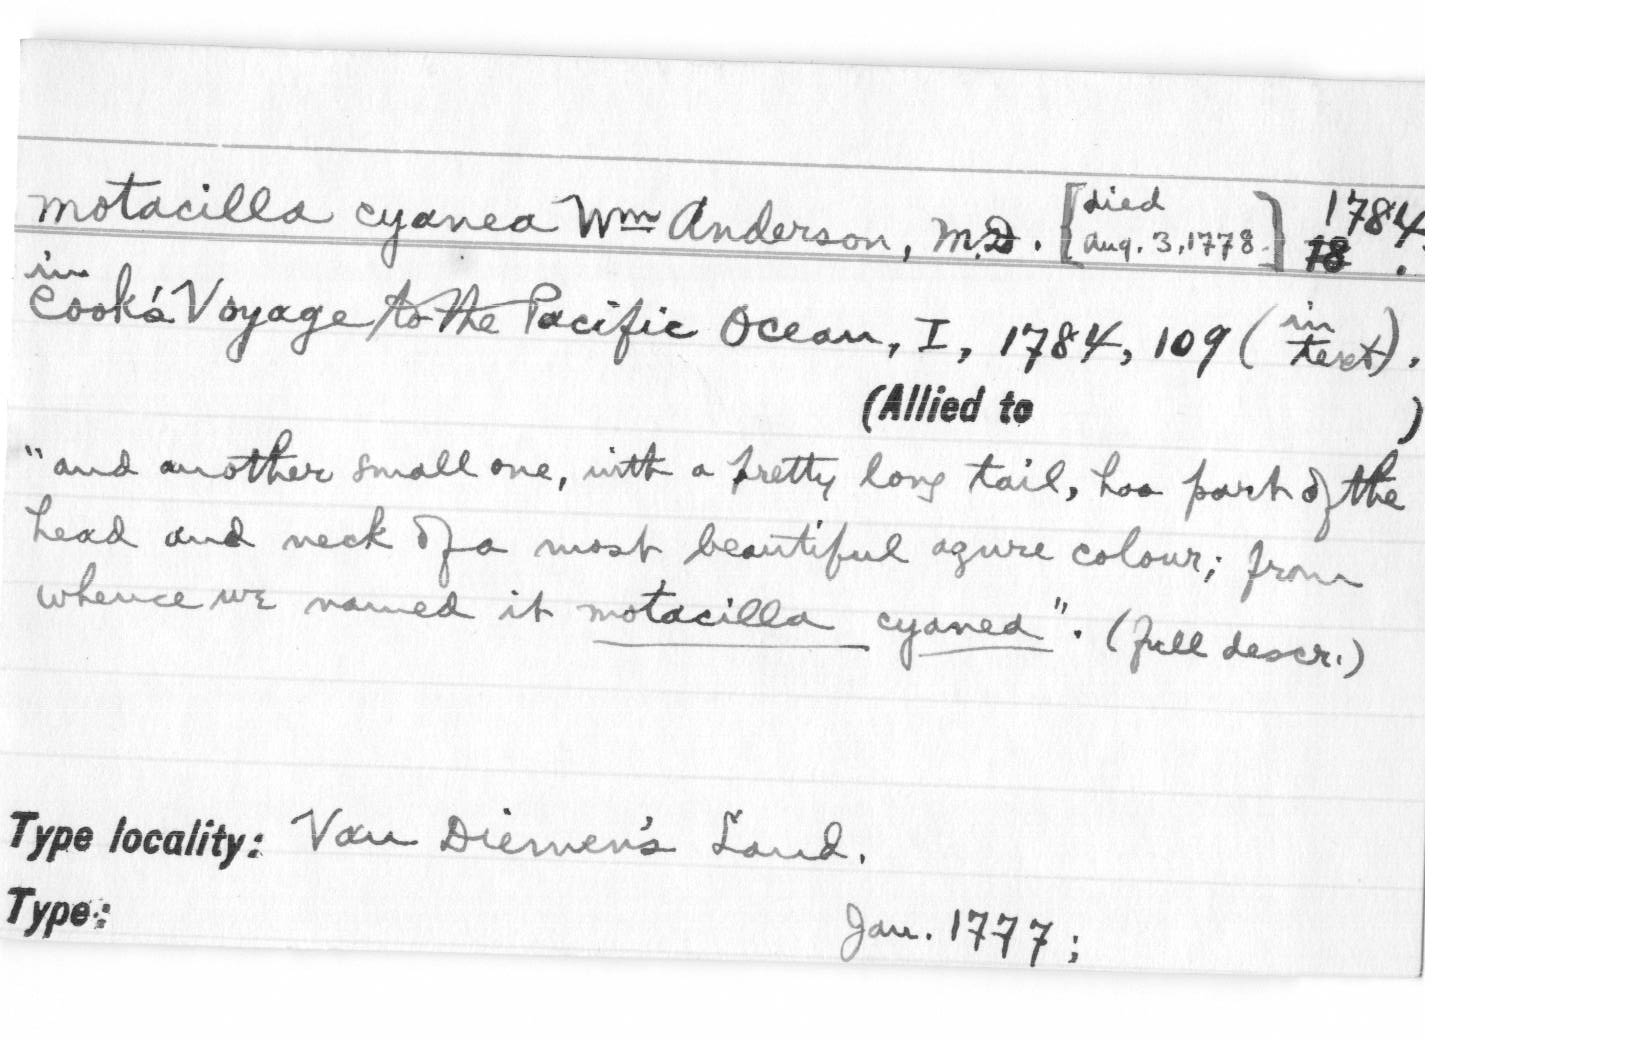 motacilla cyanea Wm Anderson, M.D. [died Aug. 3, 1778.] 1784.
18 .
in Cook's Voyage to the Pacific Ocean, I, 1784, 109 (in text).
(Allied to )
"and another small one, with a pretty long tail, has part of the
head and neck of a most beautiful azure colour; from
whence we named it motacilla cyanea". (full descr.)
Type locality: Van Diemen's Land.
Type: Jan. 1777;